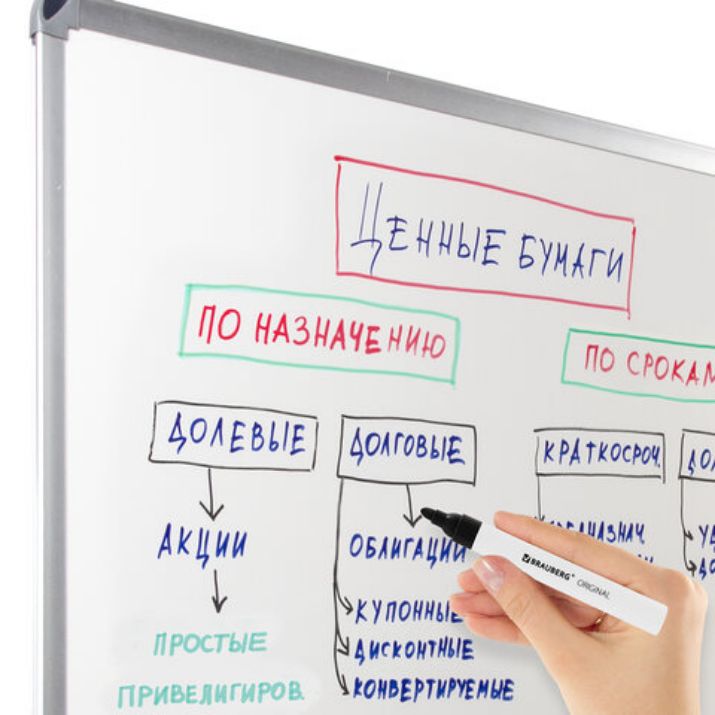 ЦЕННЫЕ БУМАГИ
ПО НАЗНАЧЕНИЮ
ПО СРОКАМ
ДОЛЕВЫЕ
ДОЛГОВЫЕ
КРАТКОСРОЧ.
АКЦИИ
ОБЛИГАЦИИ
ПРОСТЫЕ
ПРИВЕЛИГИРОВ.
КУПОННЫЕ
ДИСКОНТНЫЕ
КОНВЕРТИРУЕМЫЕ
BRAUBERG ORIGINAL